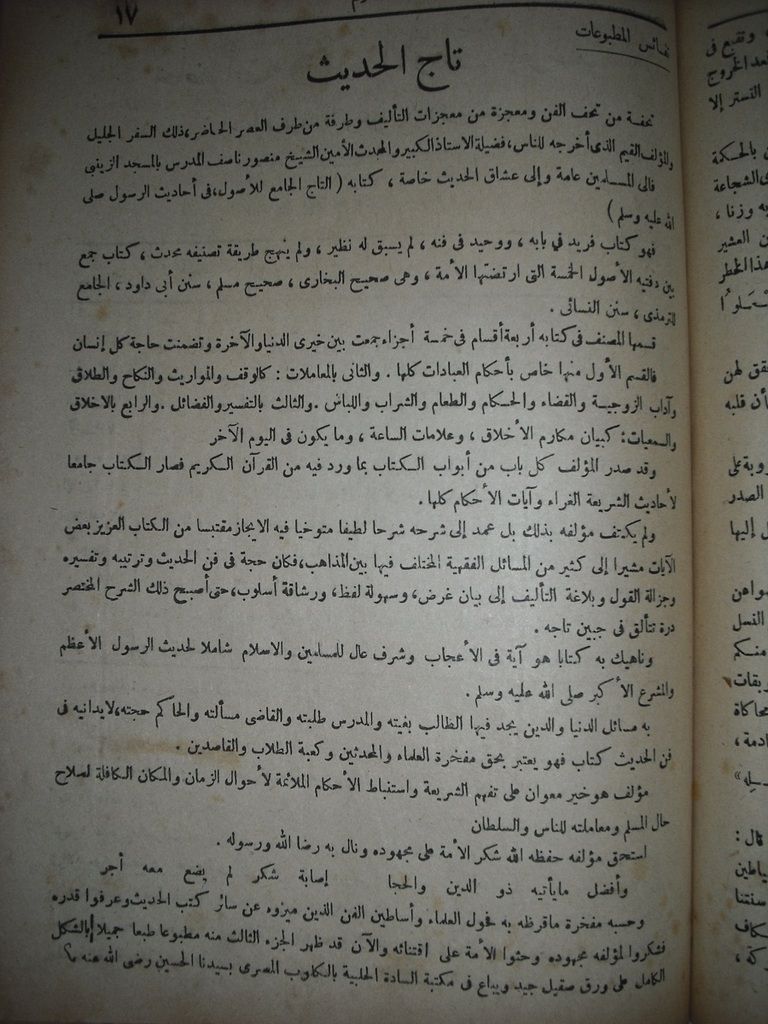 ١٧
نفائس المطبوعات
تاج الحديث
تحفة من تحف الفن ومعجزة من معجزات التأليف وطرفة من طرف العصر الحاضر، ذلك السفر الجليل
والمؤلف القيم الذى أخرجه للناس، فضيلة الاستاذ الكبير والمحدث الأمين الشيخ منصور ناصف المدرس بالمسجد الزينبى
فالى المسلمين عامة وإلى عشاق الحديث خاصة ، كتابه ( التاج الجامع للأصول، فى أحاديث الرسول صلى
الله عليه وسلم )
فهو كتاب فريد في بابه ، ووحيد فى فنه ، لم يسبق له نظير ، ولم ينهج طريقة تصنيفه محدث ، كتاب جمع
بين دفتيه الأصول الخمسة التى ارتضتها الأمة ، وهى صحيح البخارى ، صحيح مسلم ، سنن أبى داود ، الجامع
للترمذى ، سنن النسائى .
قسمها المصنف فى كتابه أربعة أقسام فى خمسة أجزاء جمعت بين خيرى الدنيا والآخرة وتضمنت حاجة كل إنسان
فالقسم الأول منها خاص بأحكام العبادات كلها . والثانى بالمعاملات : كالوقف والمواريث والنكاح والطلاق
وآداب الزوجية والقضاء والحكام والطعام والشراب واللباس . والثالث بالتفسير والفضائل . والرابع بالاخلاق
والسمعيات: كبيان مكارم الأخلاق ، وعلامات الساعة ، وما يكون فى اليوم الآخر
وقد صدر المؤلف كل باب من أبواب الكتاب بما ورد فيه من القرآن الكريم فصار الكتاب جامعا
لأحاديث الشريعة الغراء وآيات الأحكام كلها .
ولم يكتف مؤلفه بذلك بل عمد إلى شرحه شرحا لطيفا متوخيا فيه الايجاز مقتبسا من الكتاب العزيز بعض
الآيات مشيرا إلى كثير من المسائل الفقهية المختلف فيها بين المذاهب، فكان حجة فى فن الحديث وترتيبه وتفسيره
وجزالة القول وبلاغة التأليف إلى بيان غرض، وسهولة لفظ، ورشاقة أسلوب، حتى أصبح ذلك الشرح المختصر
درة تتألق فى جبين تاجه .
وناهيك به كتابا هو آية فى الأعجاب وشرف عال للمسلمين والاسلام شاملا لحديث الرسول الأعظم
والمشرع الأكبر صلى الله عليه وسلم .
به مسائل الدنيا والدين يجد فيها الطالب بغيته والمدرس طلبته والقاضى مسألته والحاكم حجته، لايدانيه فى
فن الحديث كتاب فهو يعتبر بحق مفخرة العلماء والمحدثين وكعبة الطلاب والقاصدين .
مؤلف هو خير معوان على تفهم الشريعة واستنباط الأحكام الملائمة لأحوال الزمان والمكان الكافلة لصلاح
حال المسلم ومعاملته للناس والسلطان
استحق مؤلفه حفظه الله شكر الأمة على مجهوده ونال به رضا الله ورسوله .
وأفضل مايأتيه ذو الدين والحجا إصابة شكر لم يضع معه أجر
وحسبه مفخرة ماقرظه به فحول العلماء وأساطين الفن الذين ميزوه عن سائر كتب الحديث وعرفوا قدره
فشكروا لمؤلفه مجهوده وحثوا الأمة على اقتنائه والآن قد ظهر الجزء الثالث منه مطبوعا طبعا جميلا بالشكل
الكامل على ورق صقيل جيد ويباع فى مكتبة السادة الحلبية بالكلوب المصرى بسيدنا الحسين رضى الله عنه